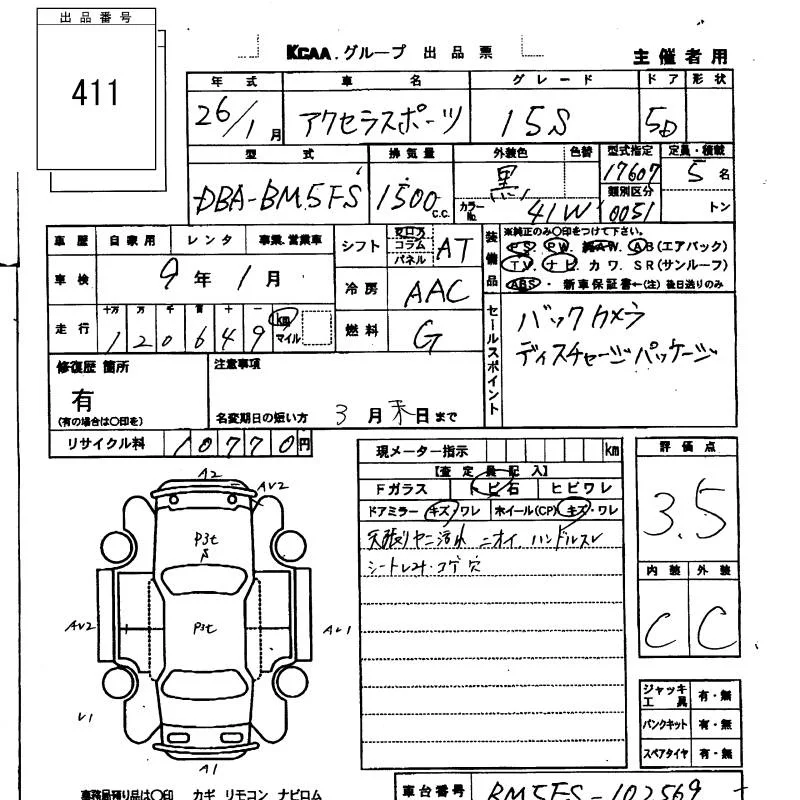 出品番号
411
KCAA.グループ 出品票
主催者用
年式 車名 グレード ドア 形状
26/1月 アクセラスポーツ 15S 5D
型式 排気量 外装色 色替 型式指定 定員・積載
DBA-BM5FS 1500c.c. 黒 17607 5名
類別区分
カラーNo. 41W 0051 トン
車歴 自家用 レンタ 事業、営業車
車検 9年1月
走行 十万 万 千 百 十 一
120649 km マイル
シフト フロア コラム パネル AT
冷房 AAC
燃料 G
装備品
※純正のみ○印をつけて下さい。
P S. P W. A W. A B(エアバック)
T V. ナ ビ. カ ワ. S R(サンルーフ)
ABS・ 新車保証書←(注) 後日送りのみ
セールスポイント
バックカメラ
ディスチャージパッケージ
修復歴 箇所
有
(有の場合は○印を)
注意事項
名変期日の短い方 3月末日まで
リサイクル料 10770円
現メーター指示 km
【査定員記入】
Fガラス トビ石 ヒビワレ
ドアミラー キズ・ワレ ホイール(CP) キズ・ワレ
天張りヤニ汚れ ニオイ. ハンドルスレ
シートしみ・コゲ穴
評価点
3.5
内装 外装
C C
A2
AV2
P3t
P3t
AV2
AV1
V1
A1
ジャッキ工具 有・無
パンクキット 有・無
スペアタイヤ 有・無
事務局預り品は○印 カギ リモコン ナビロム
車台番号 BM5FS-102569